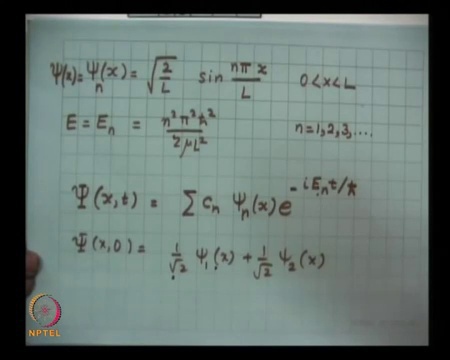 ψ(x) = ψₙ(x) = √(2/L) sin nπx/L 0<x<L
E = Eₙ = n²π²ħ²/2μL² n=1,2,3,....
Ψ(x,t) = Σ cₙ ψₙ(x) e^(-iEₙt/ħ)
Ψ(x,0) = 1/√2 ψ₁(x) + 1/√2 ψ₂(x)
NPTEL